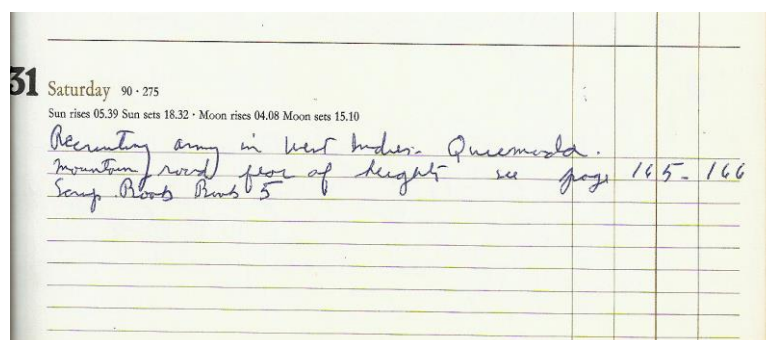 31 Saturday 90 · 275
Sun rises 05.39 Sun sets 18.32 · Moon rises 04.08 Moon sets 15.10
Recruiting army in West Indies. Queimada.
Mountain road fear of heights see page 165-166
Scrap Book Book 5